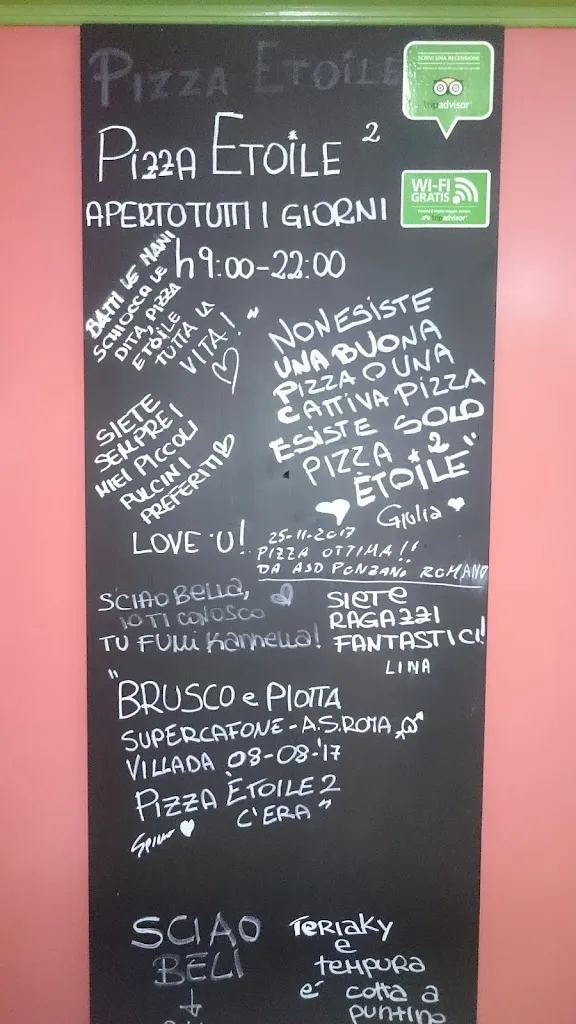 PIZZA ETOILE
SCRIVI UNA RECENSIONE
tripadvisor
PIZZA ETOILE 2
APERTO TUTTI I GIORNI
WI-FI
GRATIS
tripadvisor
h 9:00-22:00
BATTI LE MANI
SCHIOCCA LE
DITA, PIZZA
ETOILE
TUTTA LA
VITA! "
NON ESISTE
UNA BUONA
PIZZA O UNA
CATTIVA PIZZA
ESISTE SOLO
PIZZA
ÈTOILE 2"
Giulia
SIETE
SEMPRE I
MIEI PICCOLI
PULCINI
PREFERITI
LOVE U!
25-11-2017
PIZZA OTTIMA!!
DA ASD PONZANO ROMANO
SCIAO BELLA,
IO TI CONOSCO
TU FUMI Kannella!
SIETE
RAGAZZI
FANTASTICI!
LINA
"BRUSCO e PIOTTA
SUPERCAFONE - A.S. ROMA
VILLADA 08-08-'17
PIZZA ÈTOILE 2
C'ERA"
SCIAO
BELI
TERIAKY
e
tempura
é cotta a
puntino